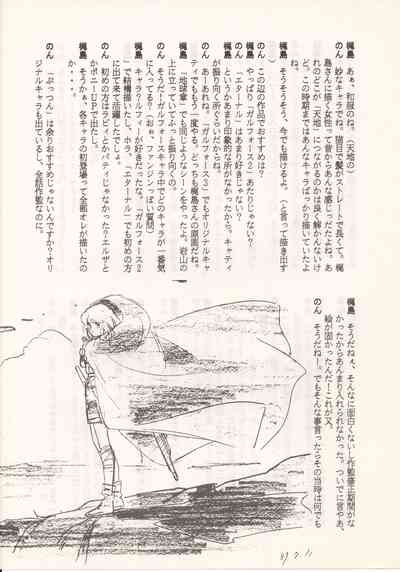 梶島　あぁ、和服のね。(天地の)
のん　妙なキャラでね、猫目で髪がストレートで長くて。梶
島さんに描く女性って昔からあんな感じだったよね。あ
れのどこが「天地」につながるのかは良く解かんないけ
ど。この時期まではあんなキャラばっかり描いていたよ
梶島　そうそうそう、今でも描けるよ。(と言って描き出す
のん　この辺の作品でおすすめは?
梶島　やっぱり「ガルフォース3」あたりじゃない?
のん　「エターナル」はあまり好きじゃない?
梶島　というかあまり印象的な所がなかったから、キャティ
が振り向く所ぐらいだからね。
のん　あーあれね。「ガルフォース3」でもオリジナルキャ
ティでもうう一度やる。どっちも梶島さんの原画だね。
「地球章」でも同じようなシーンをやったよ。岩山の
上に立っていてふっと振り向くの。
のん　そうだ!ガルフォースキャラ中でどのキャラが一番気
に入ってる?(おぉ、ファンジンっぽい質問)
梶島　キャラ?ルフィーが好きだったな。「ガルフォース2」
で結構描いたし、小かった。「エターナル」でも初めの方
に出て来て活躍したでしょ。
のん　初めの方はラビィとかパティじゃなかった?エルザと
かポニーUPで出たし。
梶島　そうかぁ、各キャラの初登場って全部オレが描いたの
か・・・。
のん　「ぷっつん」は余りおすすめじゃないんですか?オリ
ジナルキャラも出ているし、全話作監なのに。
梶島　そうだねぇ、そんなに面白くないし作監修正期間がな
かったからあんまり入れられなかった。ついでに言やあ、
絵が固かったんだ!これが又。
のん　そうだねー。でもそんな事言ったらその当時は何でも